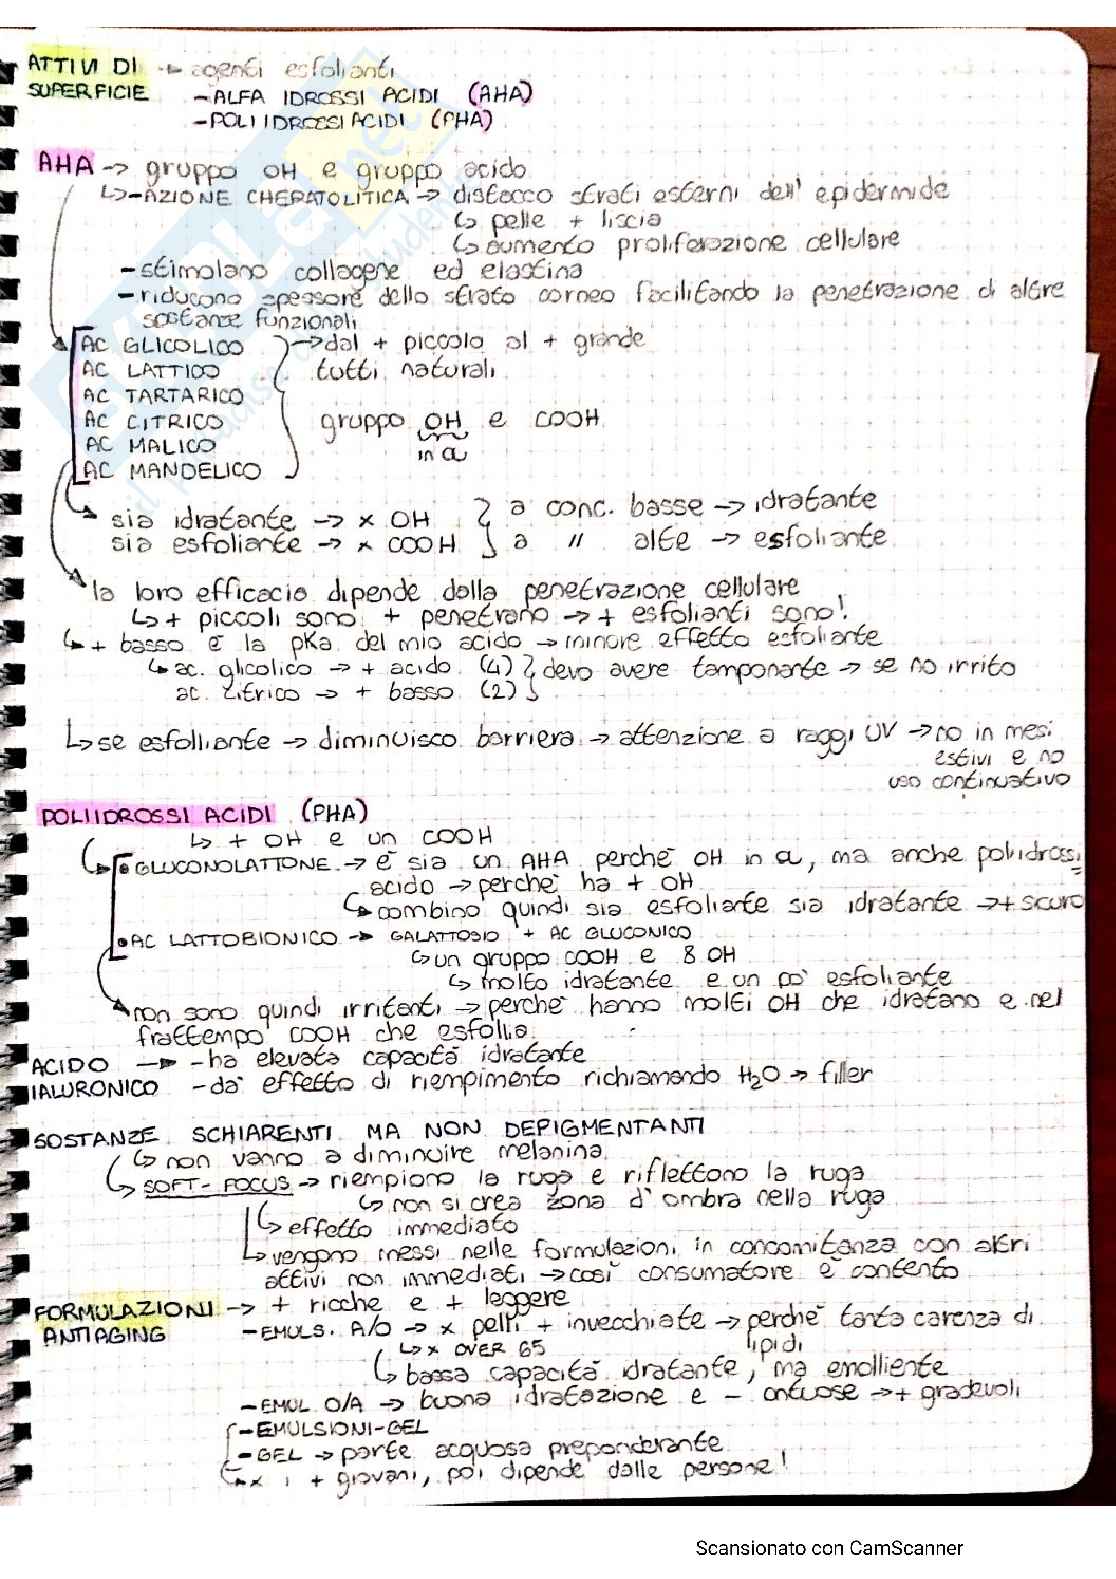 ATTIVI DI → agenti esfolianti
SUPERFICIE - ALFA IDROSSI ACIDI (AHA)
- POLIIDROSSIACIDI (PHA)
AHA → gruppo OH e gruppo acido
↳ - AZIONE CHERATOLITICA → distacco strati esterni dell' epidermide
↳ pelle + liscia
↳ aumento proliferazione cellulare
- stimolano collagene ed elastina
- riducono spessore dello strato corneo facilitando la penetrazione di altre
sostanze funzionali
AC GLICOLICO → dal + piccolo al + grande
AC LATTICO tutti naturali
AC TARTARICO
AC CITRICO gruppo OH e COOH
AC MALICO in α
AC MANDELICO
sia idratante → x OH } a conc. basse → idratante
sia esfoliante → x COOH } a " alte → esfoliante
la loro efficacia dipende dalla penetrazione cellulare
↳ + piccoli sono + penetrano → + esfolianti sono!
↳ + basso è la pKa del mio acido → minore effetto esfoliante
↳ ac. glicolico → + acido (4) } devo avere tamponante → se no irrito
ac. citrico → + basso (2)
↳ se esfolliante → diminuisco barriera → attenzione a raggi UV → no in mesi
estivi e no
uso continuativo
POLIIDROSSI ACIDI (PHA)
↳ + OH e un COOH
• GLUCONOLATTONE → è sia un AHA perchè OH in α, ma anche polidrossi
acido → perchè ha + OH
↳ combino quindi sia esfoliante sia idratante → + scuro
• AC LATTOBIONICO → GALATTOSIO + AC GLUCONICO
↳ un gruppo COOH e 8 OH
↳ molto idratante e un pò esfoliante
non sono quindi irritanti → perchè hanno molti OH che idratano e nel
frattempo COOH che esfollia
ACIDO → - ha elevata capacità idratante
IALURONICO - dà effetto di riempimento richiamando H₂O → filler
SOSTANZE SCHIARENTI MA NON DEPIGMENTANTI
↳ non vanno a diminuire melanina
↳ SOFT-FOCUS → riempiono la ruga e riflettono la ruga
↳ non si crea zona d'ombra nella ruga
↳ effetto immediato
↳ vengono messi nelle formulazioni in concomitanza con altri
attivi non immediati → così consumatore è contento
FORMULAZIONI → + ricche e + leggere
ANTIAGING - EMULS. A/O → x pelli + invecchiate → perchè tanta carenza di
↳ x OVER 65 lipidi
↳ bassa capacità idratante, ma emolliente
- EMUL O/A → buona idratazione e - ontuose → + gradevoli
- EMULSIONI-GEL
- GEL → parte acquosa preponderante
↳ x i + giovani, poi dipende dalle persone!
Scansionato con CamScanner